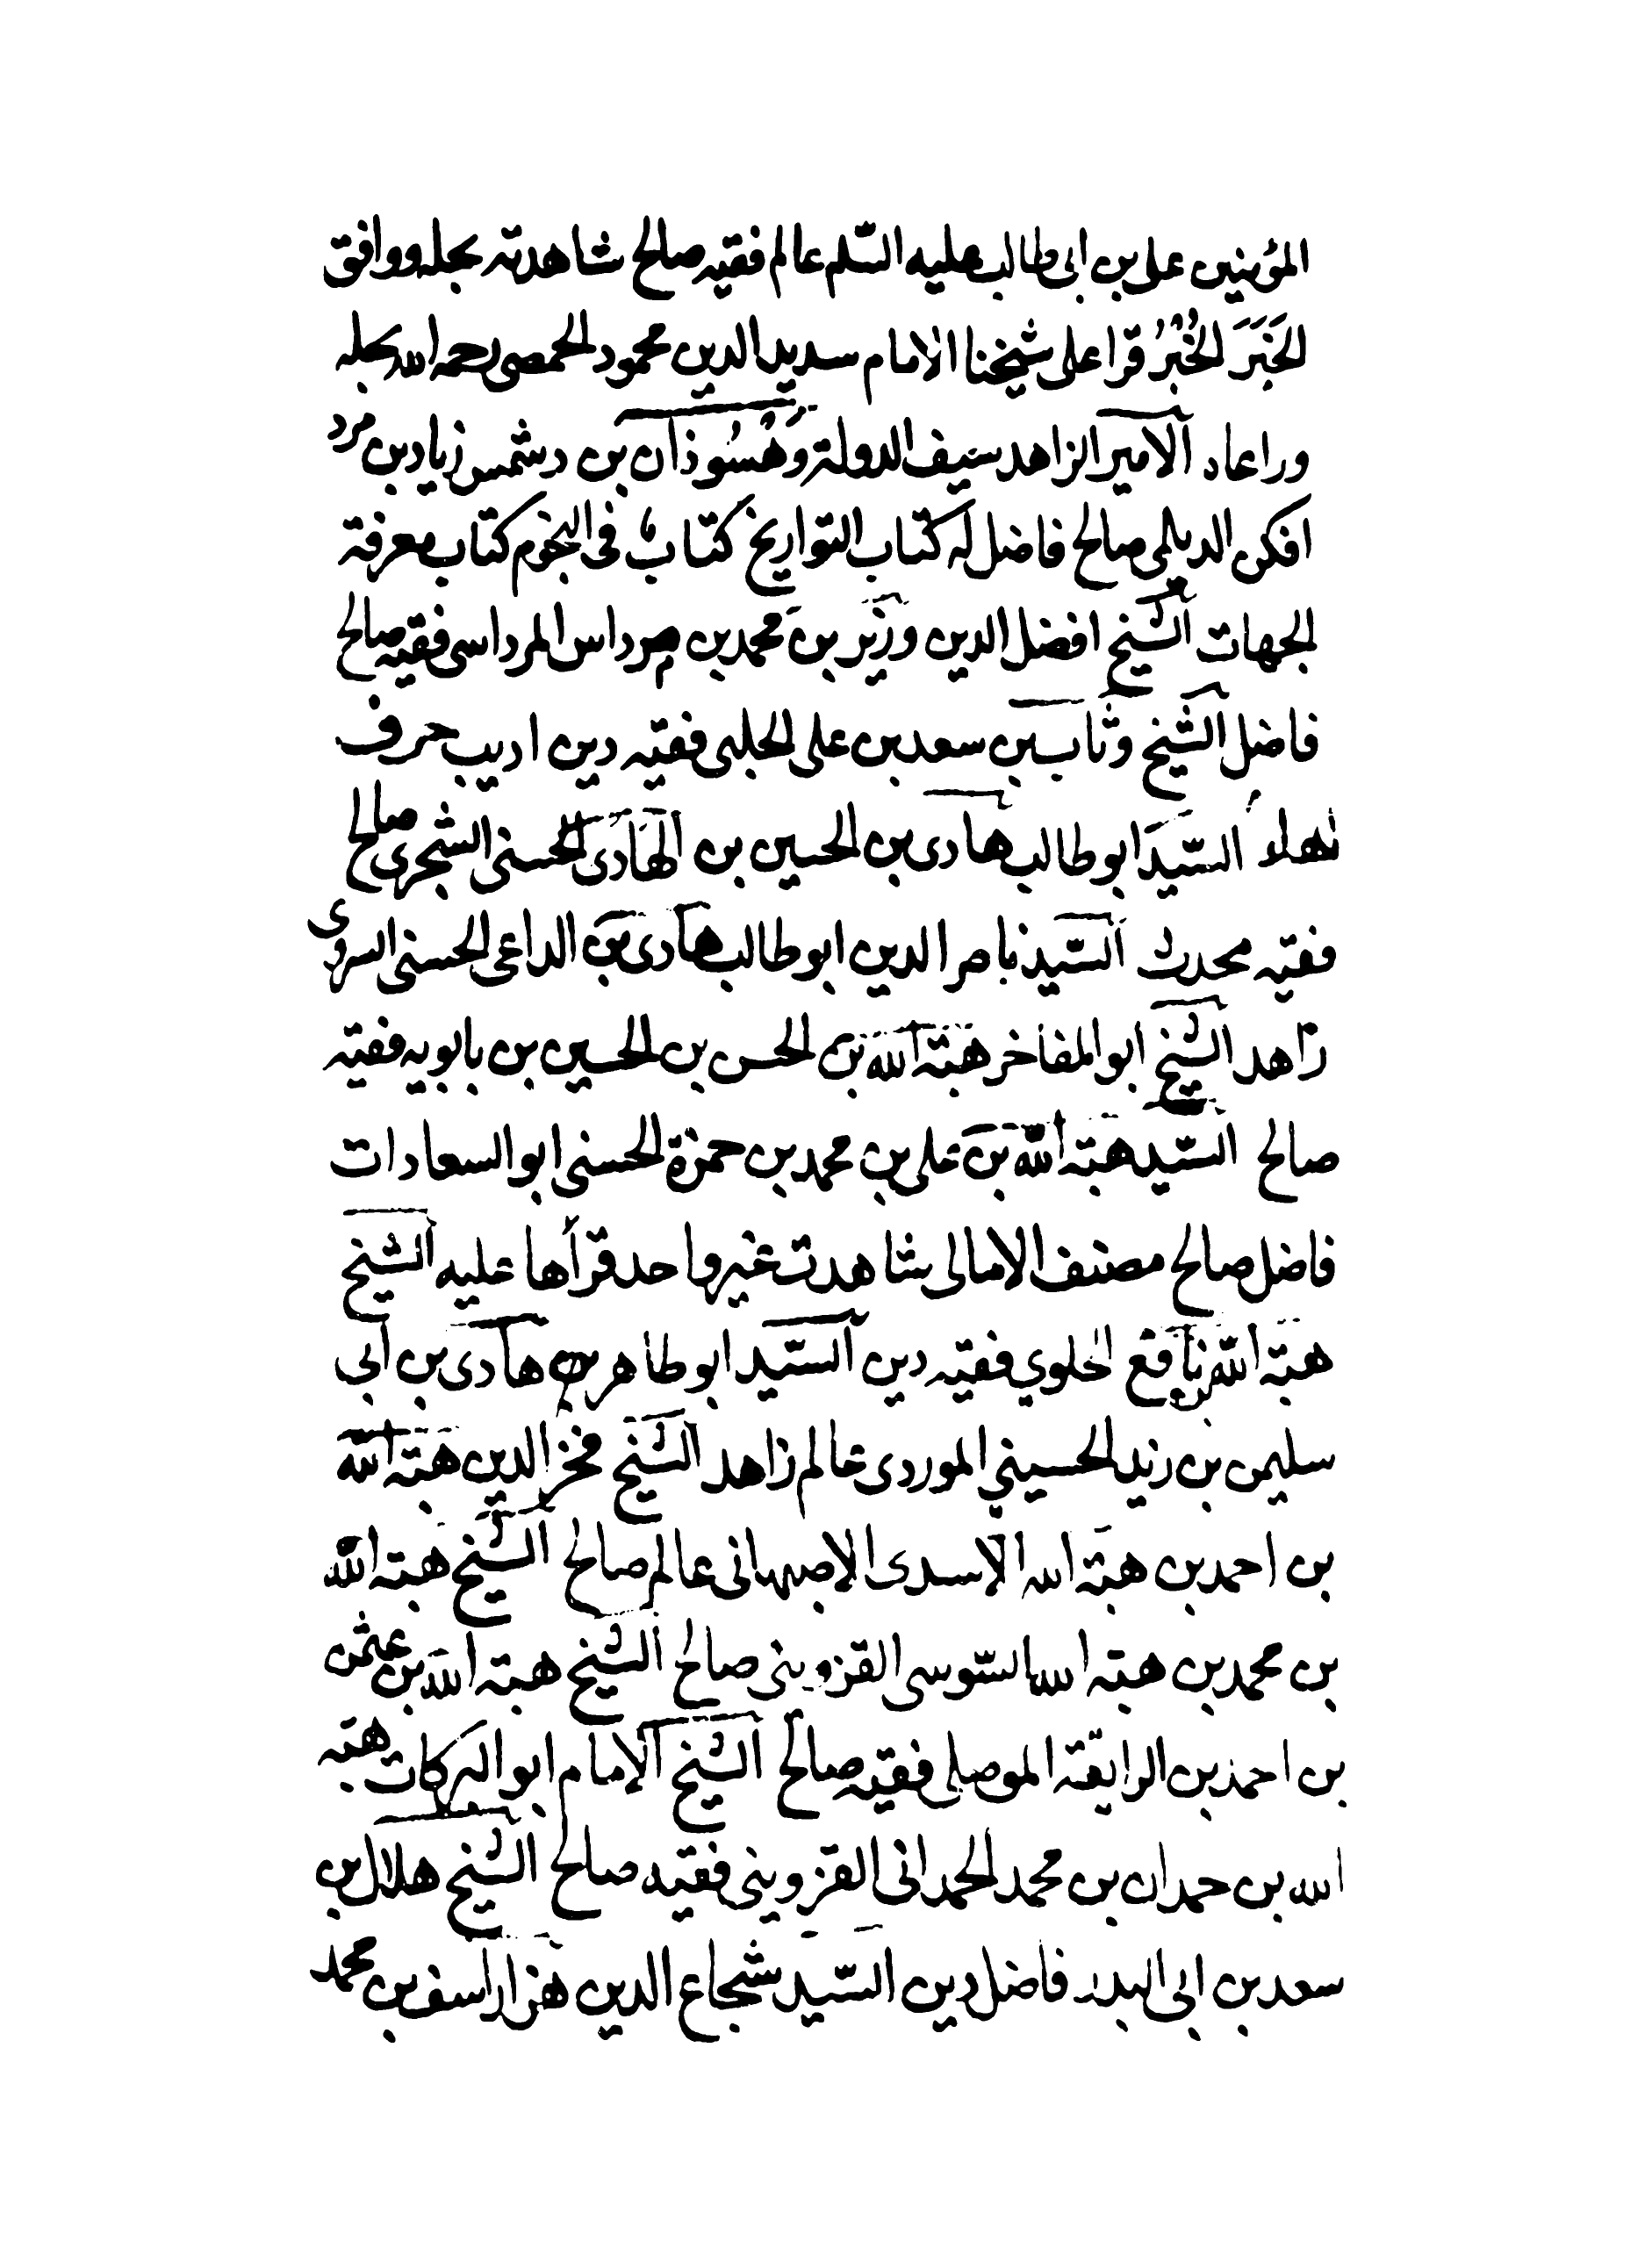 المؤمنين على بن ابى طالب عليه السّلم عالم فقيه صالح شاهدته بحلة ووافق
الخَبَرَ الخُبْرُ قرا على شيخنا الامام سديد الدين محمود الحمصى رحمه الله بحلة
الامير الزاهد سيف الدولة وَهْسُوذان بن دشمن زيار بن مرد
افكن الديلمى صالح فاضل له كتاب التواريخ كتابٌ فى النجوم كتاب معرفة
الجهات الشيخ افضل الدين وزير بن محمد بن مرداس المرداسى فقيه صالح
فاضل الشيخ وثاب بن سعد بن على الحلبى فقيه دين اديب حرف
الهاء السّيد ابو طالب هادى بن الحسين بن الهادى الحسنى الشجرى صالح
فقيه محدث السّيد ناصر الدين ابو طالب هادى بن الداعى الحسنى السروى
زاهد الشيخ ابو المفاخر هبة الله بن الحسن بن الحسين بن بابويه فقيه
صالح السّيد هبة الله بن على بن محمد بن حمزة الحسنى ابو السعادات
فاضل صالح مصنف الامالى شاهدت غير واحد قرأها عليه الشيخ
هبة الله بن نافع الحلوي فقيه دين السّيد ابو طاهر هادى بن ابى
سليمن بن زيد الحسيني الموردى عالم زاهد الشيخ فخر الدين هبة الله
بن احمد بن هبة الله الاسدى الاصبهانى عالم صالح الشيخ هبة الله
بن محمد بن هبة الله السّوسى القزوينى صالح الشيخ هبة الله بن عثمن
بن احمد بن الرايقة الموصلى فقيه صالح الشيخ الامام ابو البركات هبة
الله بن حمدان بن محمد الحمدانى القزوينى فقيه صالح الشيخ هلال بن
سعد بن ابى البدر فاضل دين السّيد شجاع الدين هزاراسف بن محمد